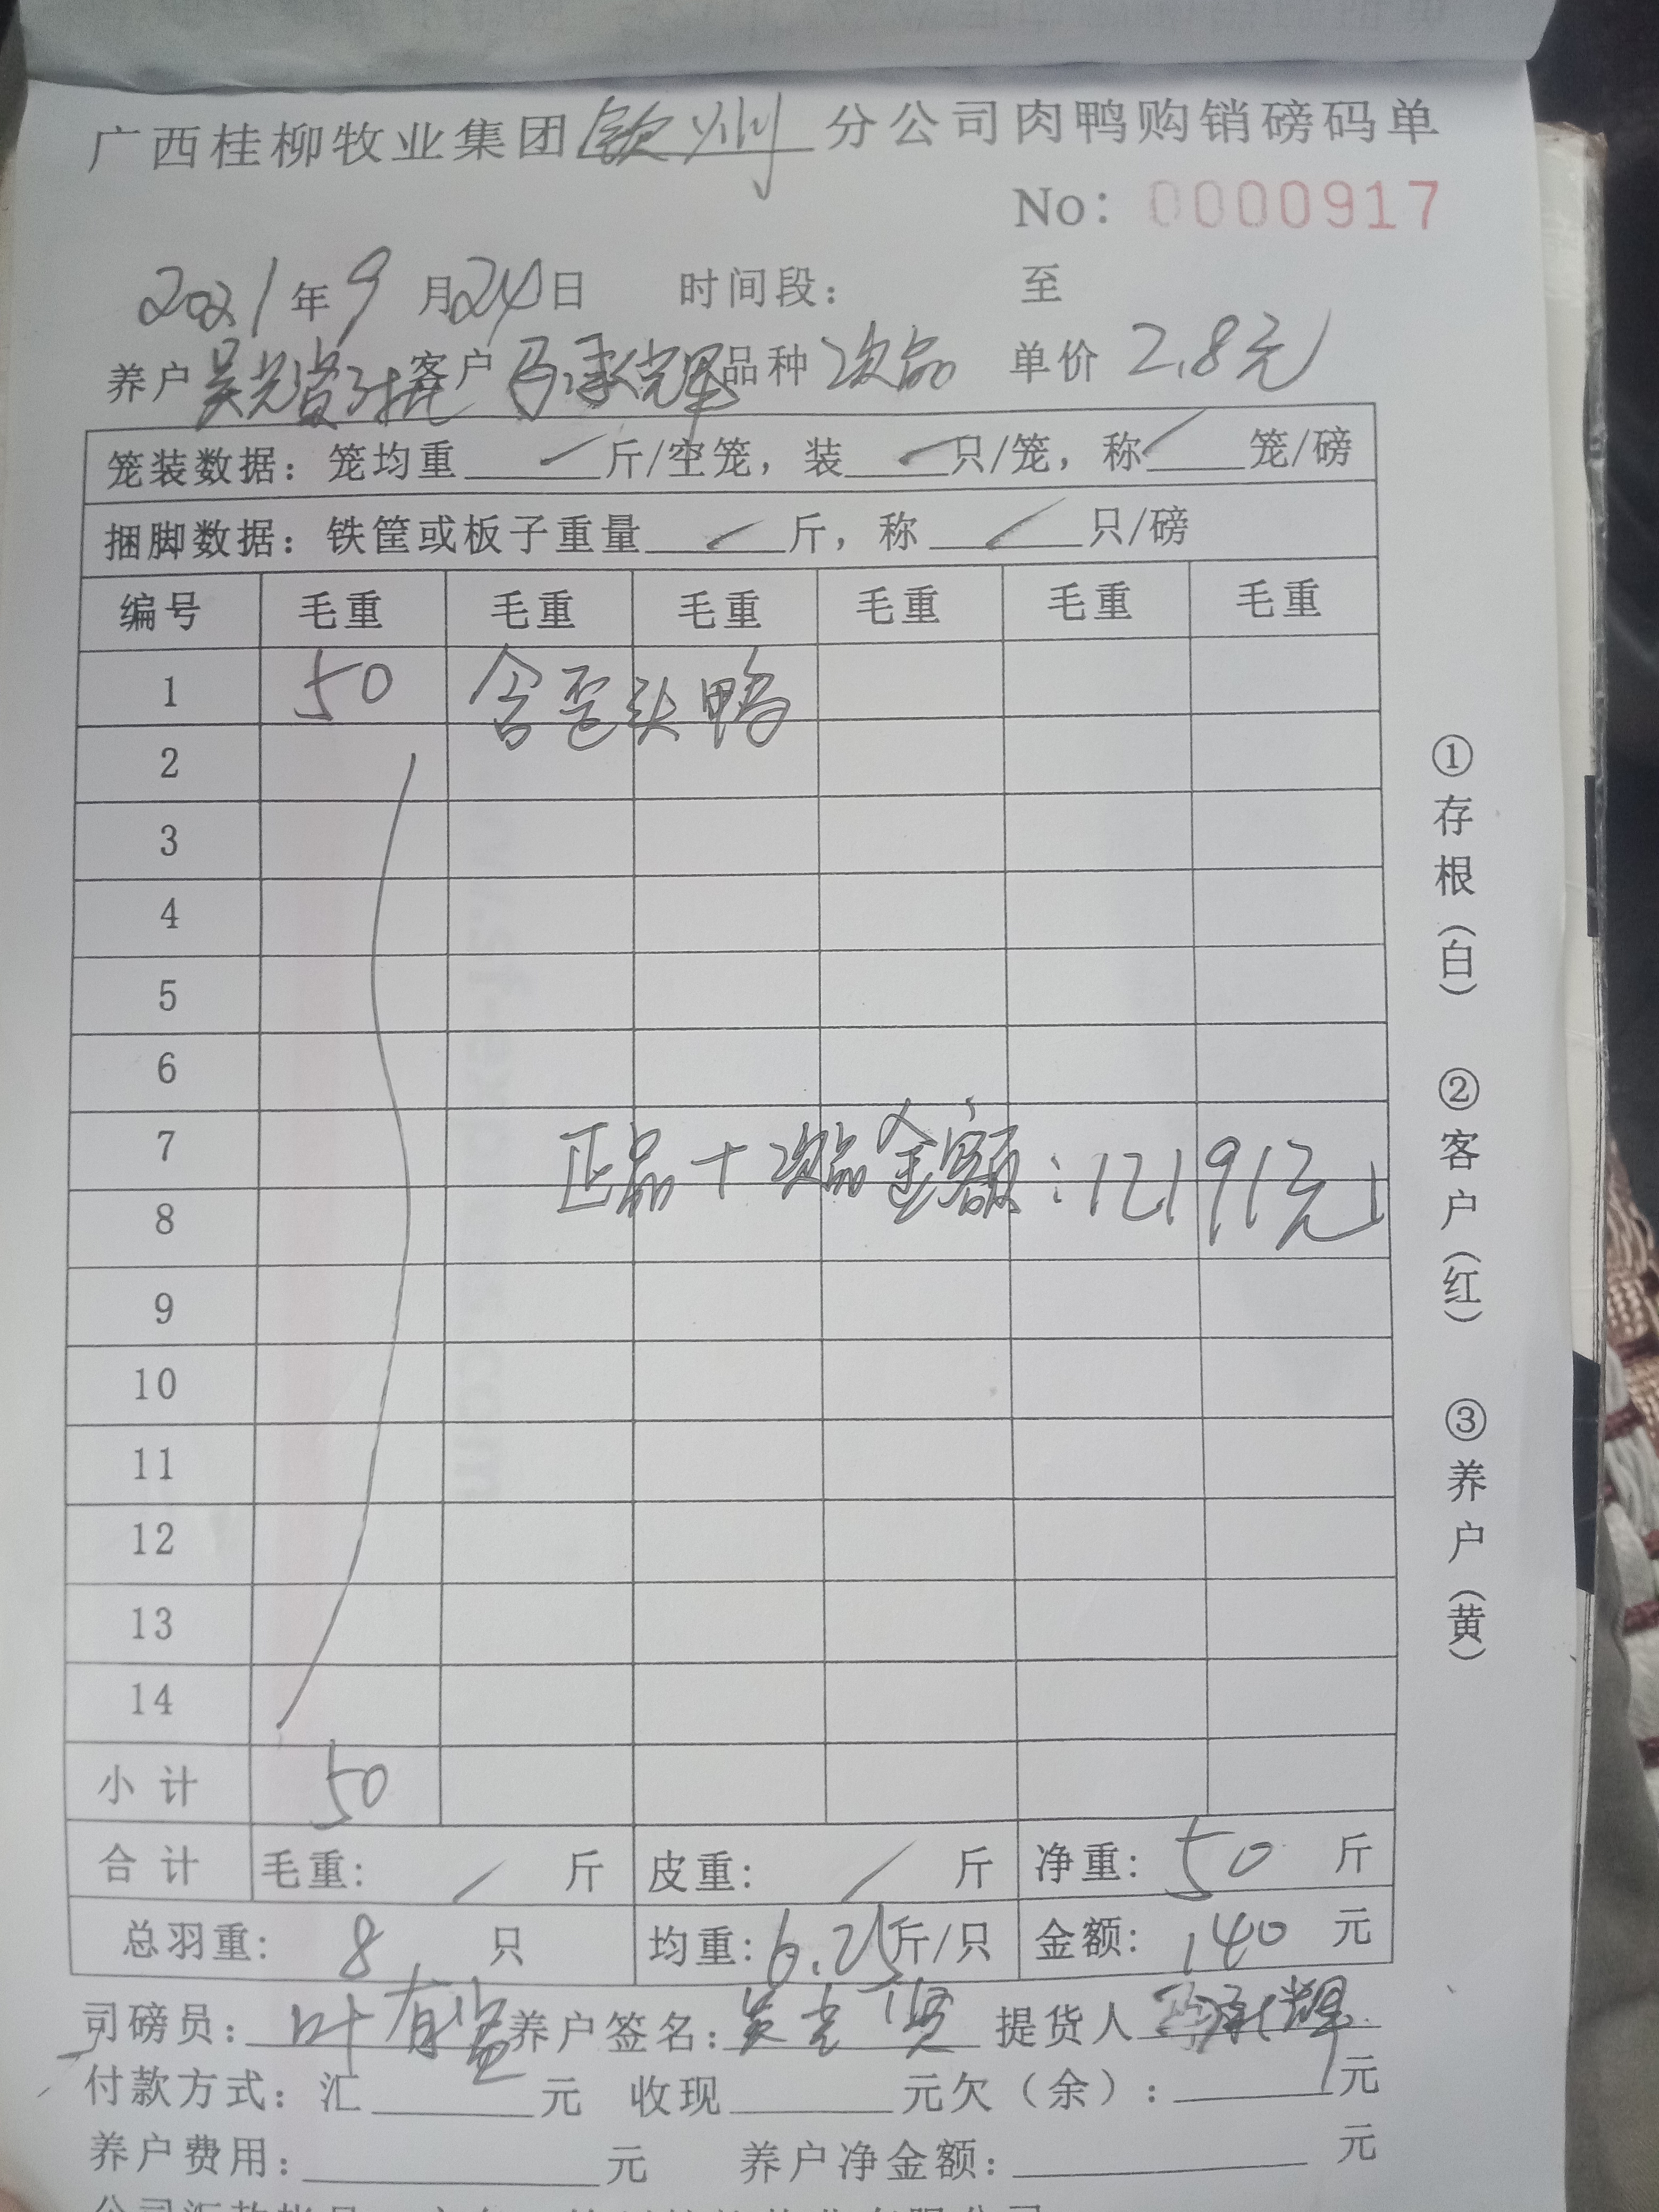 广西桂柳牧业集团钦州分公司肉鸭购销磅码单
No: 0000917
2021年9月24日 时间段: 至
养户吴光 客户 马承辉 品种 次品 单价 2.8元
笼装数据: 笼均重 / 斤/空笼, 装 / 只/笼, 称 / 笼/磅
捆脚数据: 铁筐或板子重量 / 斤, 称 / 只/磅
编号 毛重 毛重 毛重 毛重 毛重 毛重
1 50 含歪头鸭
2
3
4
5
6
7
正品+次品金额:12191元
8
9
10
11
12
13
14
小计 50
合计 毛重: / 斤 皮重: / 斤 净重: 50 斤
总羽重: 8 只 均重: 6.25斤/只 金额: 140 元
司磅员: 叶有 养户签名: 吴光贤 提货人 马承辉
付款方式: 汇 元 收现 元欠(余): 元
养户费用: 元 养户净金额: 元
①存根(白) ②客户(红) ③养户(黄)